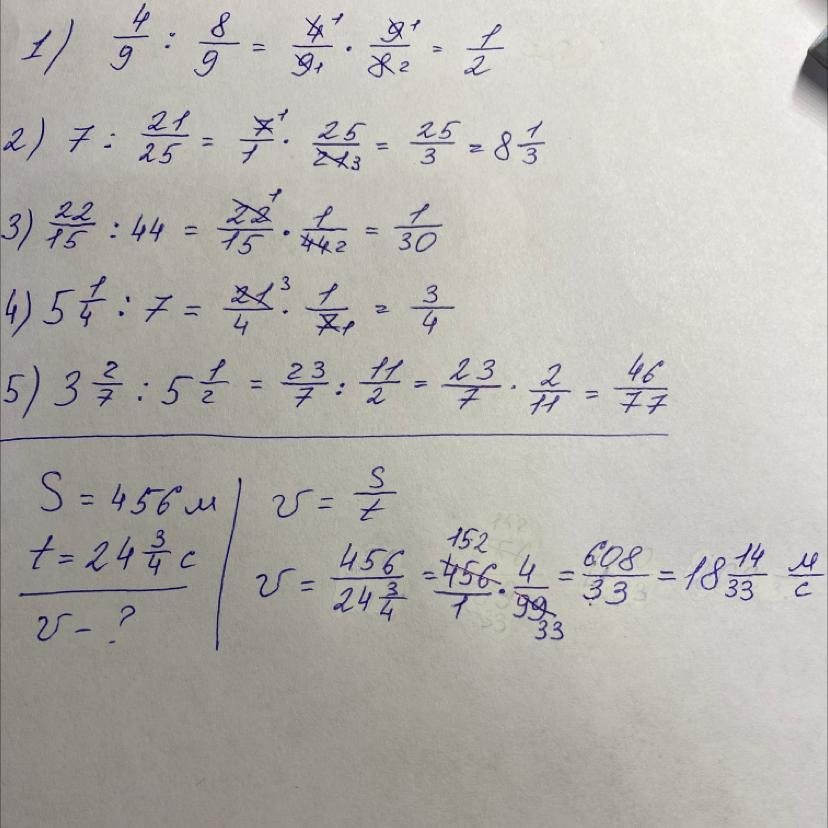 1) 4/9 : 8/9 = 4/9 · 9/8 = 1/2
2) 7 : 21/25 = 7/1 · 25/21 = 25/3 = 8 1/3
3) 22/15 : 44 = 22/15 · 1/44 = 1/30
4) 5 1/4 : 7 = 21/4 · 1/7 = 3/4
5) 3 2/7 : 5 1/2 = 23/7 : 11/2 = 23/7 · 2/11 = 46/77
S = 456 м
t = 24 3/4 с
v - ?
v = S/t
v = 456/24 3/4 = 456/1 · 4/99 = 608/33 = 18 14/33 м/с